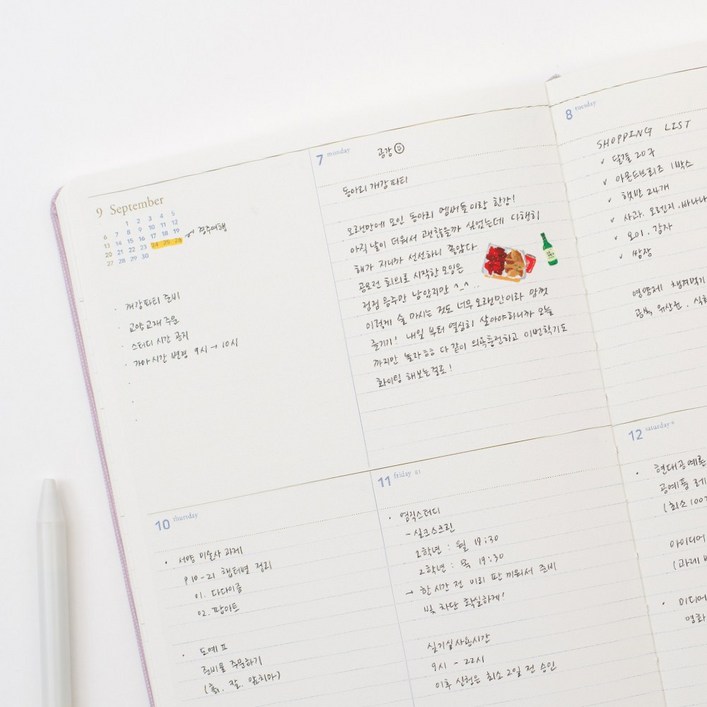 9 September
1 2 3 4 5
6 7 8 9 10 11 12
13 14 15 16 17 18 19
20 21 22 23 24 25 26
27 28 29 30
경주여행
· 개강파티 준비
· 교양 교재 주문
· 스터디 시간 공지
시간 변경 9시 → 10시
7 monday
공강
동아리 개강파티
오랜만에 모인 동아리 멤버들이랑 한강!
아직 날이 더워서 괜찮을까 싶었는데 다행히
해가 지니까 선선하니 좋았다
공모전 회의로 시작한 모임은
점점 음주만 남았지만 ^_^ ..
이렇게 술 마시는 것도 너무 오랜만이라 맘껏
즐기기! 내일 부터 열심히 살아야하니까 오늘
까지만 놀자 다 같이 의욕충전하고 이번학기도
화이팅 해보는걸로!
8 tuesday
SHOPPING LIST
✓ 달걀 20구
✓ 아몬드브리즈 1박스
✓ 햇반 24개
✓ 사과, 오렌지, 바나나
✓ 오이, 감자
✓ 쌈장
영양제 챙겨먹기
유산균,
10 thursday
· 서양 미술사 과제
p.10-21 챕터별 정리
01. 다다이즘
02. 팝아트
· 도예 Ⅱ
준비물 주문하기
(흙, 칼,
11 friday
· 염직스터디
- 실크스크린
2학년 : 목 19:30
→ 한 시간 전 미리 판 끼워서 준비
빛 차단 확실하게!
실기실사용시간
9시 - 22시
이후 신청은 최소 2일 전 승인
12 saturday
· 현대공예론
공예품
(최소 100
아이디어
(과제
· 미디어
영화